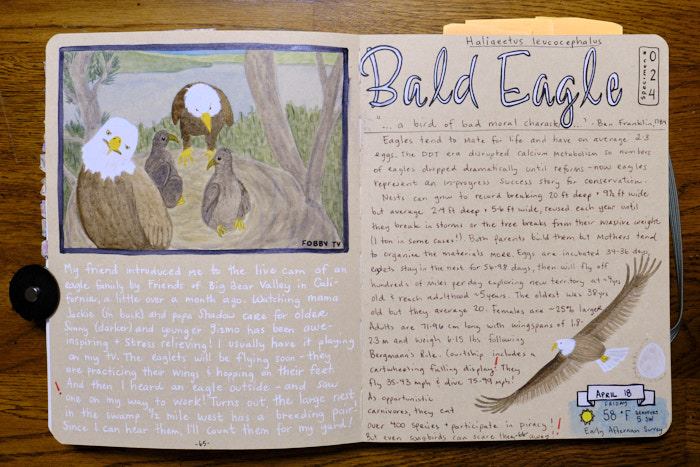 FOBBY TV
My friend introduced me to the live cam of an
eagle family by Friends of Big Bear Valley in Cali-
fornia, a little over a month ago. Watching mama
Jackie (in back) and papa Shadow care for older
Sunny (darker) and younger Gizmo has been awe-
inspiring + stress relieving! I usually have it playing
on my TV. The eaglets will be flying soon - they
are practicing their wings & hopping on their feet.
! And then I heard an eagle outside - and saw
one on my way to work! Turns out, the large nest
in the swamp 1/2 mile west has a breeding pair!
Since I can hear them, I'll count them for my yard!
-65-
Haliaeetus leucocephalus
Bald Eagle
species
024
"... a bird of bad moral character..." - Ben Franklin, 1784
Eagles tend to mate for life and have on average 2-3
eggs. The DDT era disrupted calcium metabolism so numbers
of eagles dropped dramatically until reforms - now eagles
represent an in-progress success story for conservation.
Nests can grow to record breaking 20 ft deep + 9½ ft wide
but average 2-4 ft deep + 5-6 ft wide, reused each year until
they break in storms or the tree breaks from their massive weight
(1 ton in some cases!). Both parents build them but mothers tend
to organize the materials more. Eggs are incubated 34-36 days,
eaglets stay in the nest for 56-98 days, then will fly off
hundreds of miles per day exploring new territory at ~4 yrs
old & reach adulthood ~5 years. The oldest was 38 yrs
old but they average 20. Females are ~25% larger.
Adults are 71-96 cm long with wingspans of 1.8-
2.3 m and weigh 6-15 lbs following
Bergmann's Rule. Courtship includes a
cartwheeling falling display! They
fly 35-43 mph & dive 75-99 mph!
As opportunistic
carnivores, they eat
over 400 species + participate in piracy!
But even songbirds can scare them away!
APRIL 18
FRIDAY
58 °F
5 SW
Early Afternoon Sunny